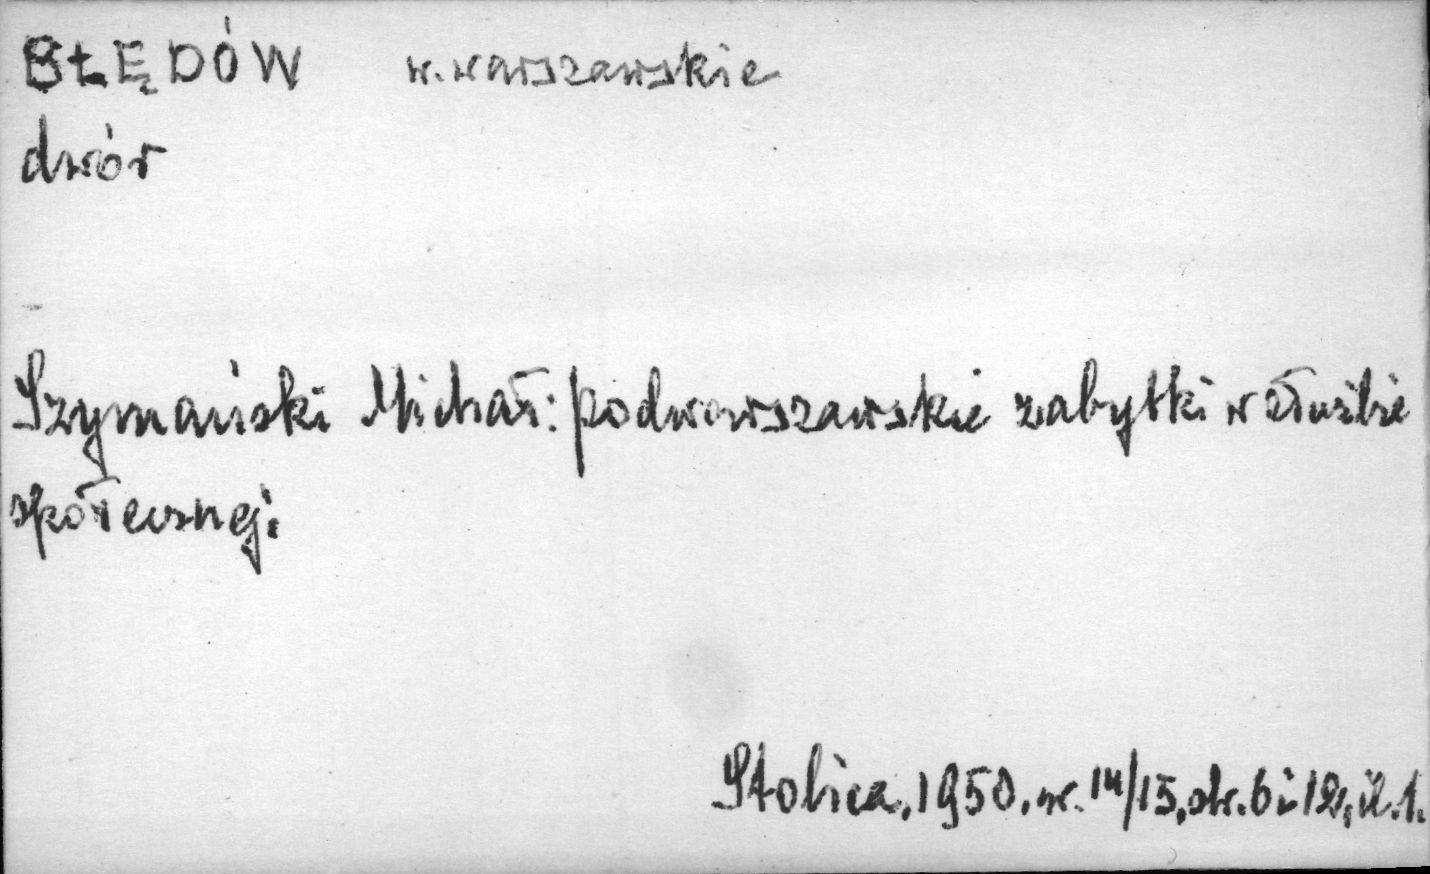 BŁĘDÓW w. warszawskie
dwór
Szymański Michał: podwarszawskie zabytki w służbie
społecznej.
Stolica, 1950. nr. 14/15, str. 6 i 12, il. 1.